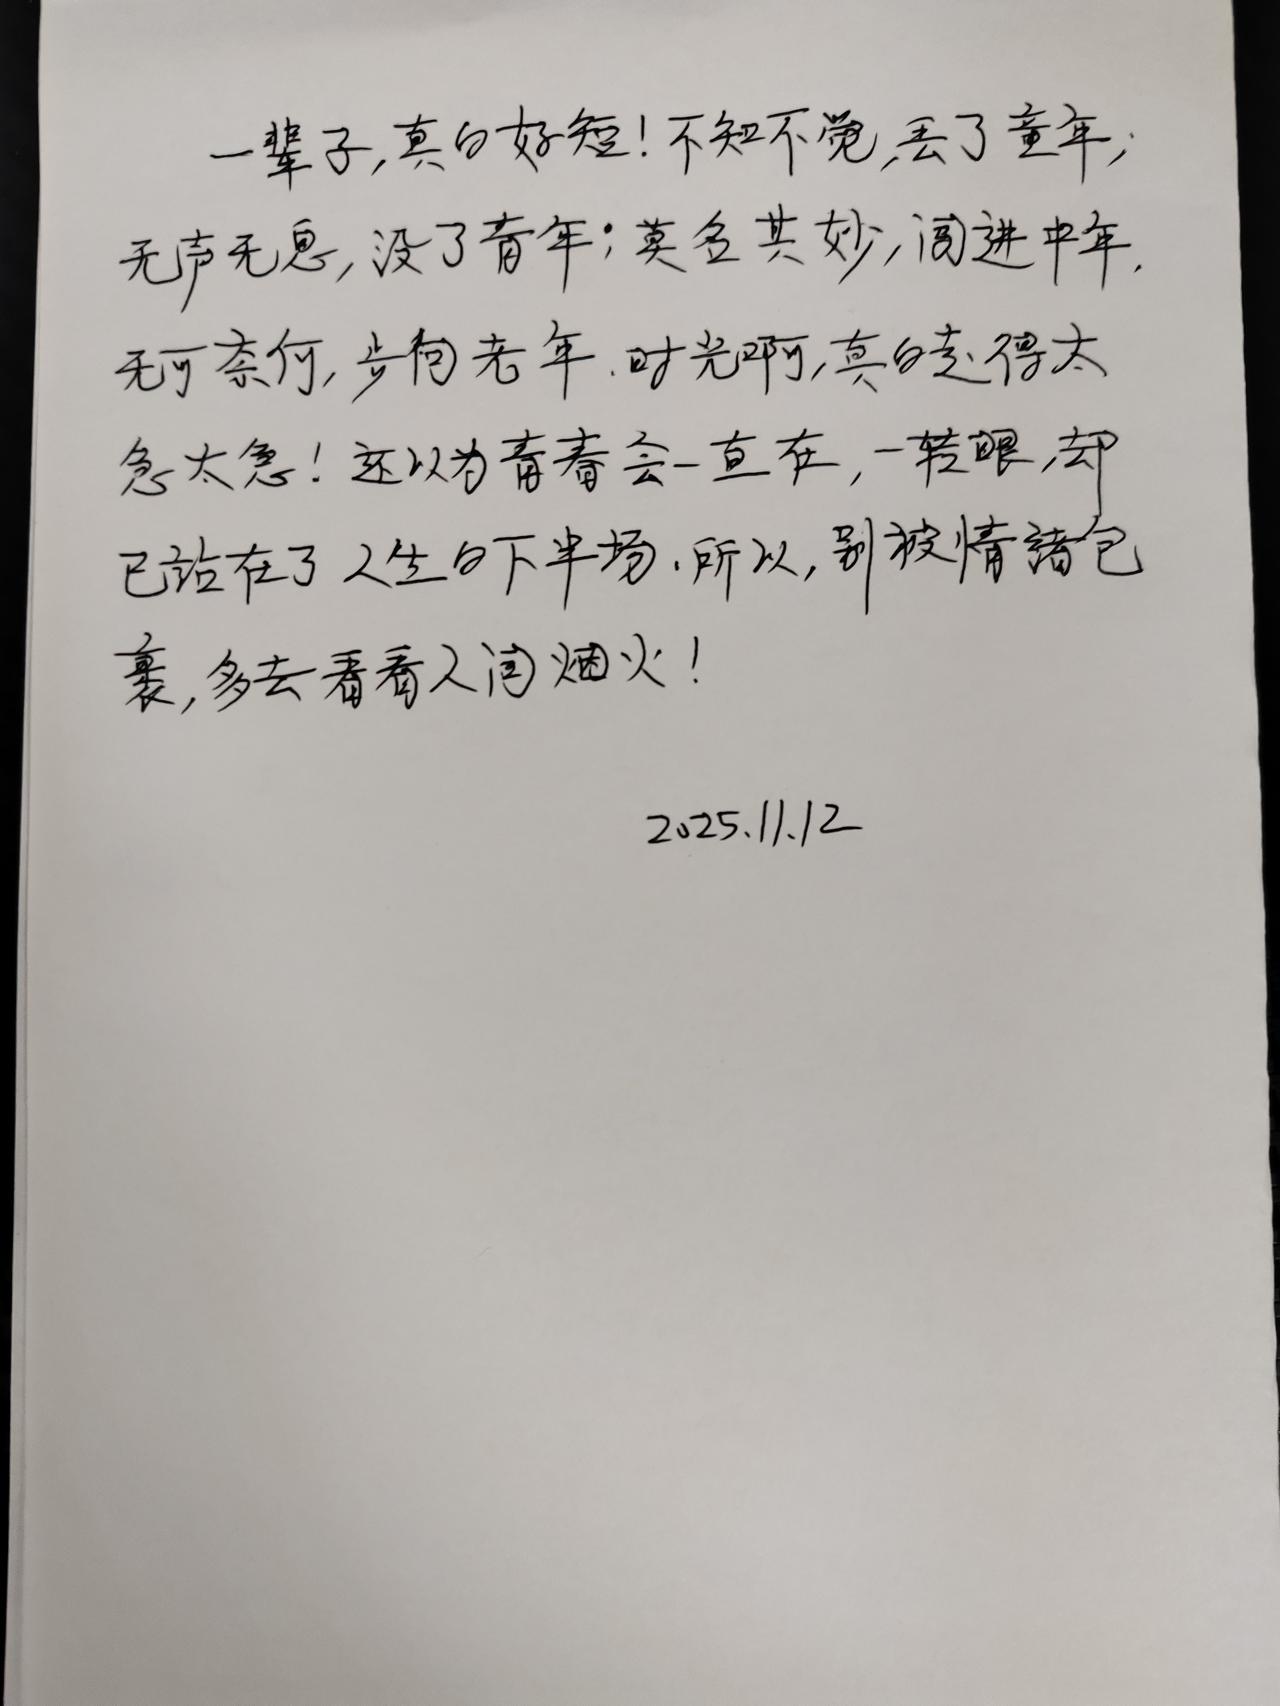 一辈子,真的好短!不知不觉,丢了童年;
无声无息,没了青年;莫名其妙,闯进中年.
无可奈何,步向老年.时光啊,真的走得太
急太急!还以为青春会一直在,一转眼,却
已站在了人生的下半场.所以,别被情绪包
裹,多去看看人间烟火!
2025.11.12